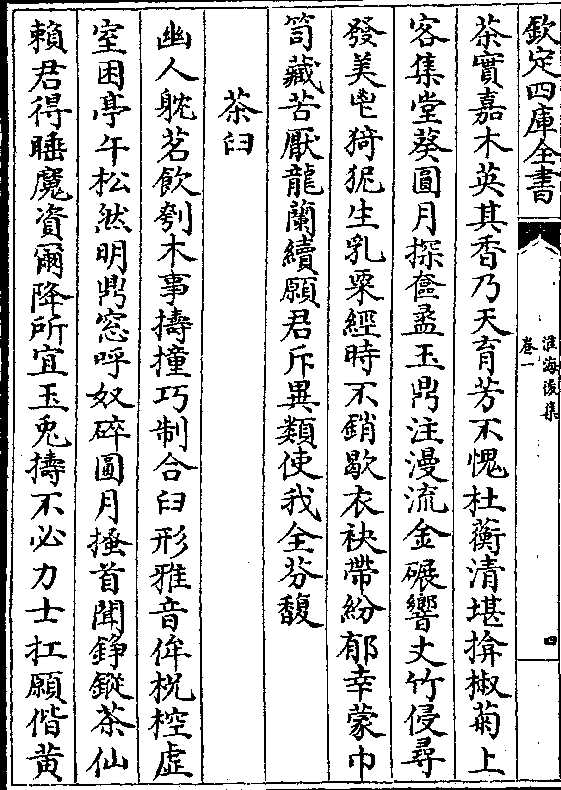 欽定四庫全書
淮海後集
卷一
四
茶實嘉木英其香乃天育芳不愧杜蘅清堪揜椒菊上
客集堂葵圓月探奩盝玉鼎注漫流金碾響丈竹侵尋
發美鬯猗狔生乳粟經時不銷歇衣袂帶紛郁幸蒙巾
笥藏苦厭龍蘭續願君斥異類使我全芬馥
茶臼
幽人躭茗飲刳木事擣撞巧制合臼形雅音侔柷椌虛
室困亭午松然明鼎窓呼奴碎圓月搔首聞錚鏦茶仙
賴君得睡魔資爾降所宜玉兎擣不必力士扛願偕黃